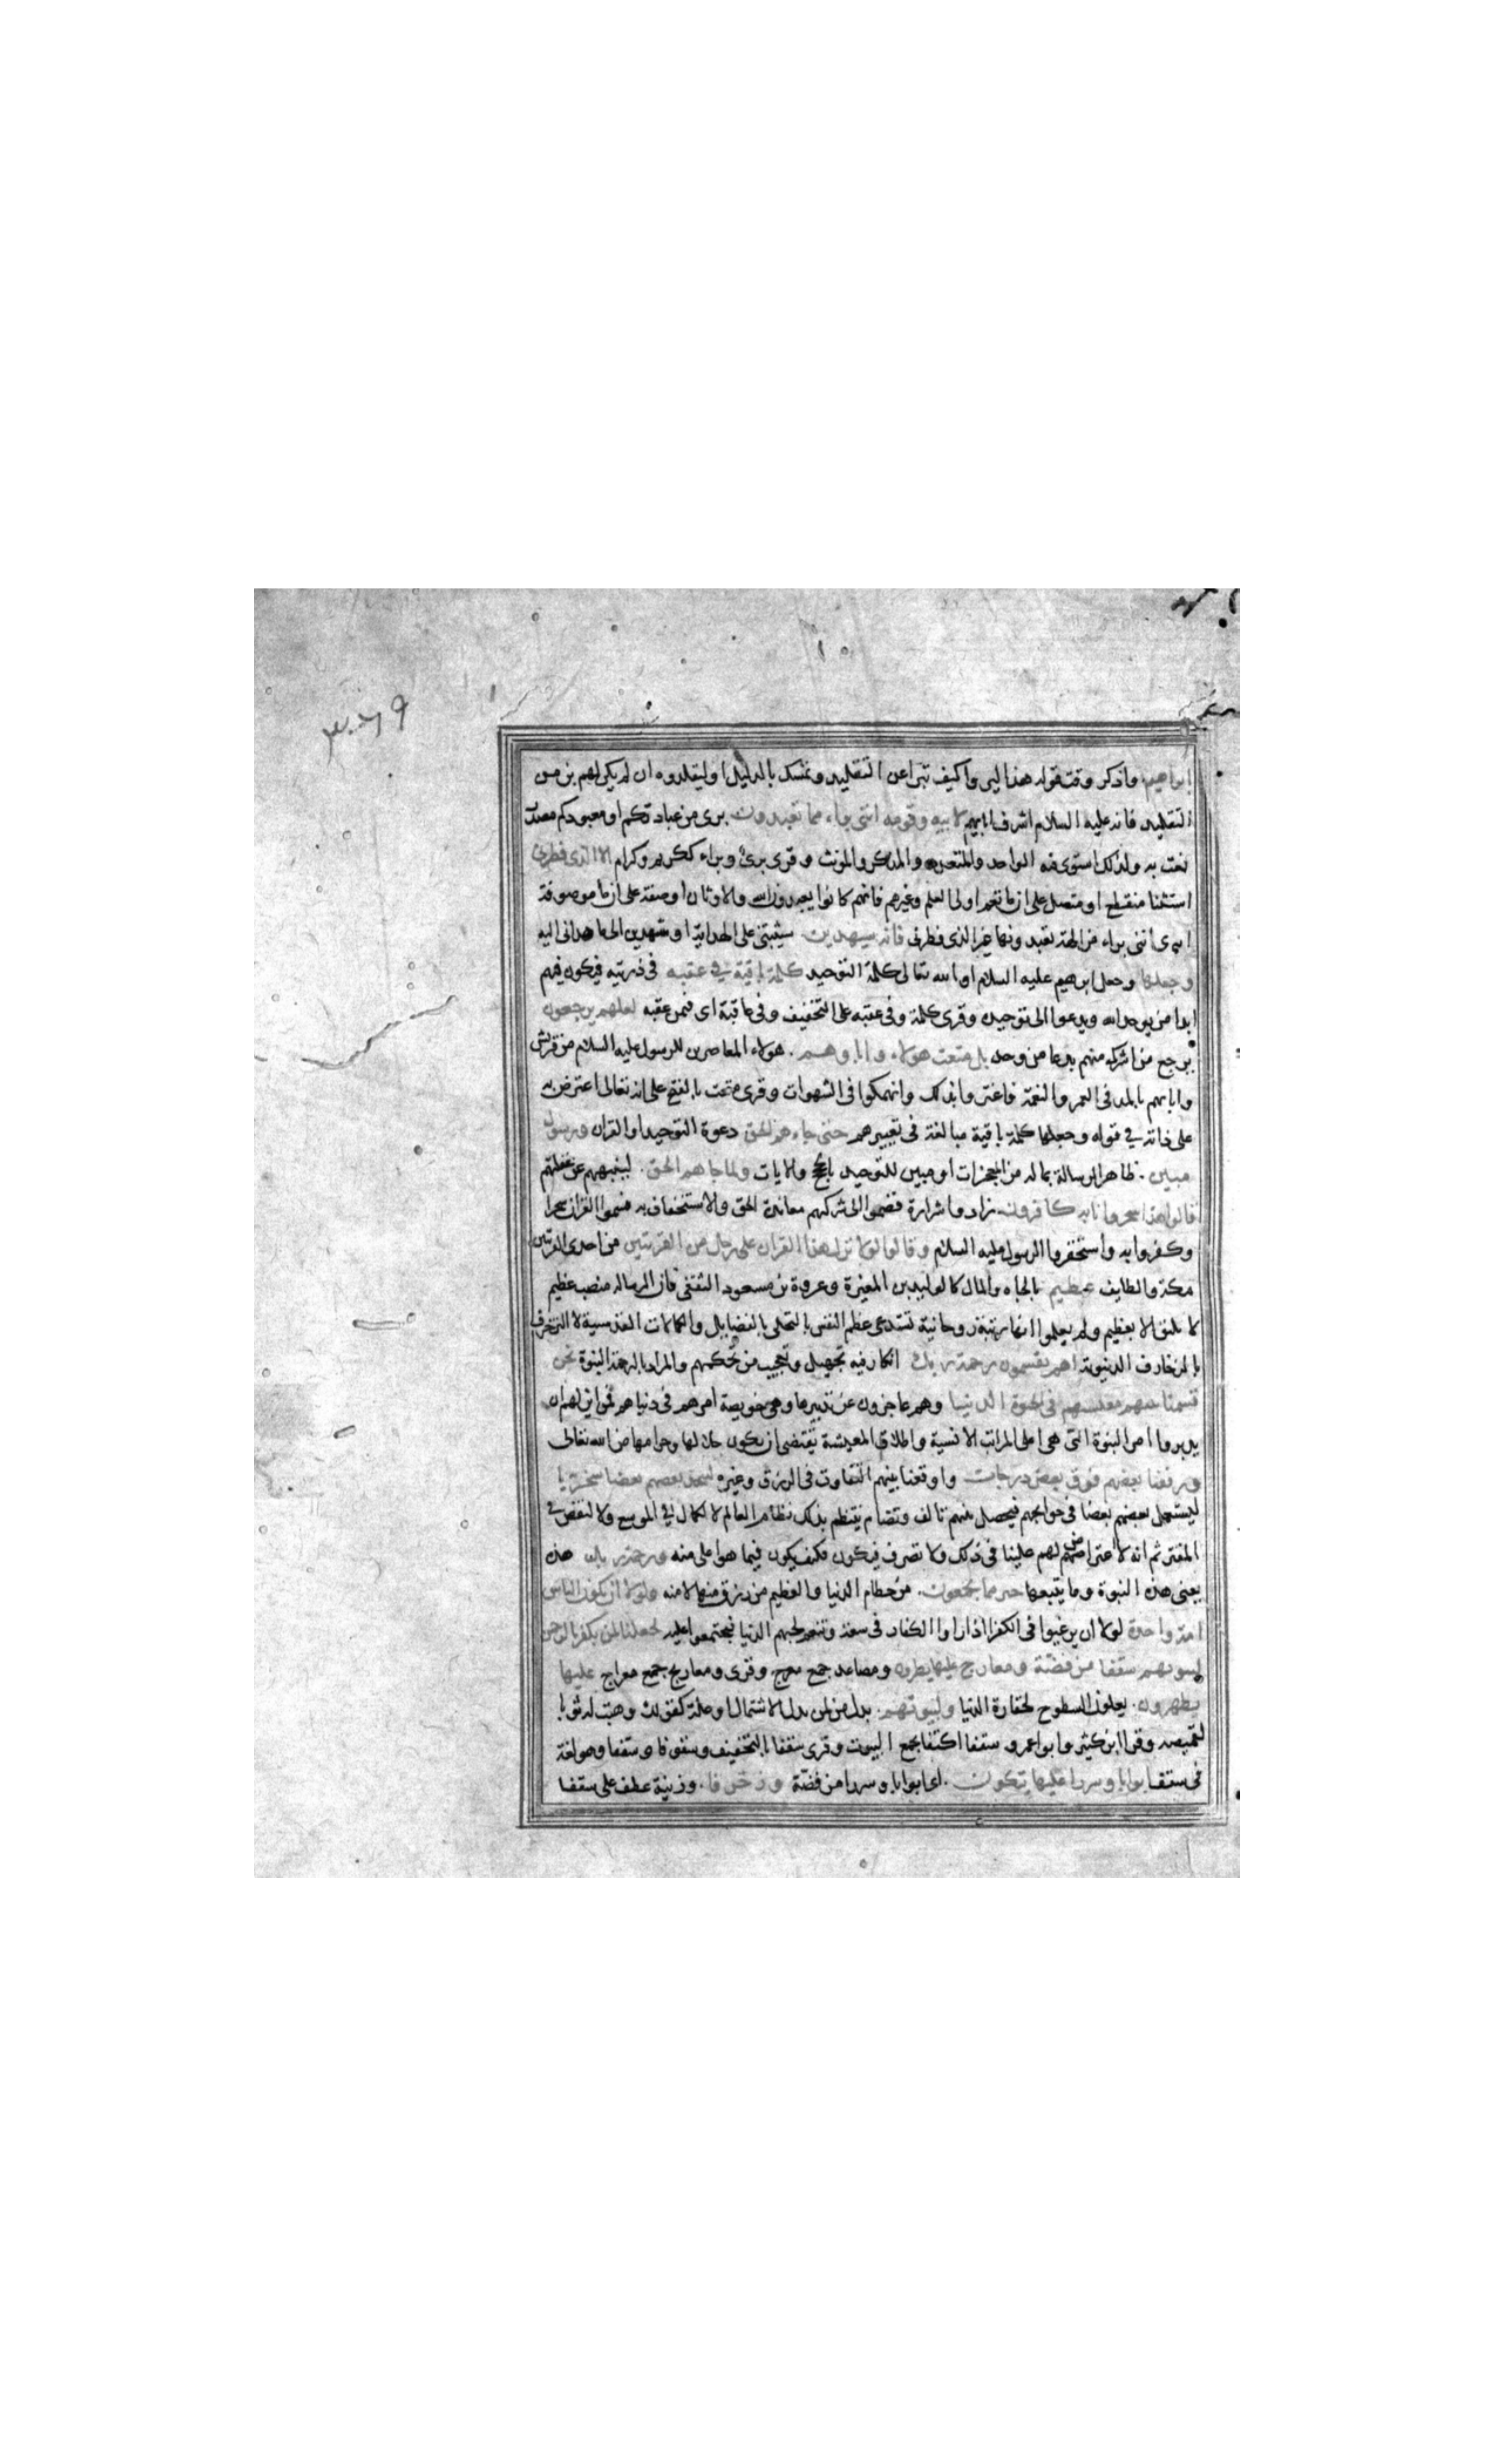 ابراهيم واذكر وقت قوله هذا ليروا كيف تبرا عن التقليد وتمسك بالدليل او ليقلدوه ان لم يكن لهم بد من
التقليد فانه عليه السلام اشرف ابايهم لابيه وقومه انني براء مما تعبدون برى من عبادتكم او معبودكم مصدر
نعت به ولذلك استوى فيه الواحد والمتعدد والمذكر والمونث وقرى برئ وبراء ككريم وكرام الا الذى فطرنى
استثنا منقطع او متصل على ان ما تعم اولى العلم وغيرهم فانهم كانوا يعبدون الله والاوثان او صفة على ان ما موصوفة
اى انني براء من الهة تعبدونها غير الذى فطرنى فانه سيهدين سيثبتنى على الهداية او سيهدين الى ما هدانى اليه
وجعلها وجعل ابرهيم عليه السلام او الله تعالى كلمة التوحيد كلمة باقية فى عقبه فى ذريته فيكون فيهم
ابدا من يوحد الله ويدعوا الى توحيده وقرى كلمة وفى عقبه على التخفيف وفى عاقبة اى فيمن عقبه لعلهم يرجعون
يرجع من اشرك منهم بدعا من وحد بل متعت هولاء واباءهم هولاء المعاصرين للرسول عليه السلام من قريش
واباءهم بالمد فى العمر والنعمة فاغتروا بذلك وانهمكوا فى الشهوات وقرى متعت بالفتح على انه تعالى اعترض به
على ذاته فى قوله وجعلها كلمة باقية مبالغة فى تعييرهم حتى جاءهم الحق دعوة التوحيد او القران ورسول
مبين ظاهر الرسالة بما له من المعجزات او مبين للتوحيد بالحجج والايات ولما جاهم الحق لينبههم عن غفلتهم
قالوا هذا سحر وانا به كافرون زادوا شرارة فضموا الى شركهم معاندة الحق والاستخفاف به فسموا القران سحرا
وكفروا به واستحقروا الرسول عليه السلام وقالوا لولا نزل هذا القران على رجل من القريتين من احدى القريتين
مكة والطايف عظيم بالجاه والمال كالوليد بن المغيرة وعروة بن مسعود الثقفى فان الرساله منصب عظيم
لا يليق الا بعظيم ولم يعلموا انها رتبة روحانية تستدعى عظم النفس بالتحلى بالفضايل والكمالات القدسية لا التزخرف
بالزخارف الدنيوية اهم يقسمون رحمة ربك انكار فيه تجهيل وتعجيب من تحكمهم والمراد بالرحمة النبوة نحن
قسمنا بينهم معيشتهم فى الحيوة الدنيا وهم عاجزون عن تدبيرها وهى خويصة امرهم فى دنياهم فمن اين لهم ان
يدبروا امر النبوة التى هى اعلى المراتب الانسية واطلاق المعيشة يقتضى ان يكون حلالها وحرامها من الله تعالى
ورفعنا بعضهم فوق بعض درجات واوقعنا بينهم التفاوت فى الرزق وغيره ليتخذ بعضهم بعضا سخريا
ليستعمل بعضهم بعضا فى حوايجهم فيحصل بينهم تالف وتضام ينتظم بذلك نظام العالم لا لكمال فى الموسع ولا لنقص فى
المقتر ثم انه لا اعتراض لهم علينا فى ذلك ولا تصرف فيكون فكيف يكون فيما هو اعلى منه ورحمة ربك هذه
يعنى هذه النبوة وما يتبعها خير مما يجمعون من حطام الدنيا والعظيم من رزق منها لا منه ولولا ان يكون الناس
امة واحدة لولا ان يرغبوا فى الكفر اذا راوا الكفار فى سعة وتنعم لحبهم الدنيا فيجتمعوا عليه لجعلنا لمن يكفر بالرحمن
لبيوتهم سقفا من فضة ومعارج عليها يظهرون ومصاعد جمع معرج وقرى ومعاريج جمع معراج عليها
يظهرون يعلون السطوح لحقارة الدنيا ولبيوتهم بدل من لمن بدل الاشتمال او صلة كقولك وهبت له ثوبا
لقميصه وقرا ابن كثير وابو عمرو سقفا اكتفا بجمع البيوت وقرى سقفا بالتخفيف وسقوفا وسقفا وهو لغة
فى سقف ابوابا وسررا عليها يتكون اى ابوابا وسررا من فضة وزخرفا وزينة عطف على سقفا